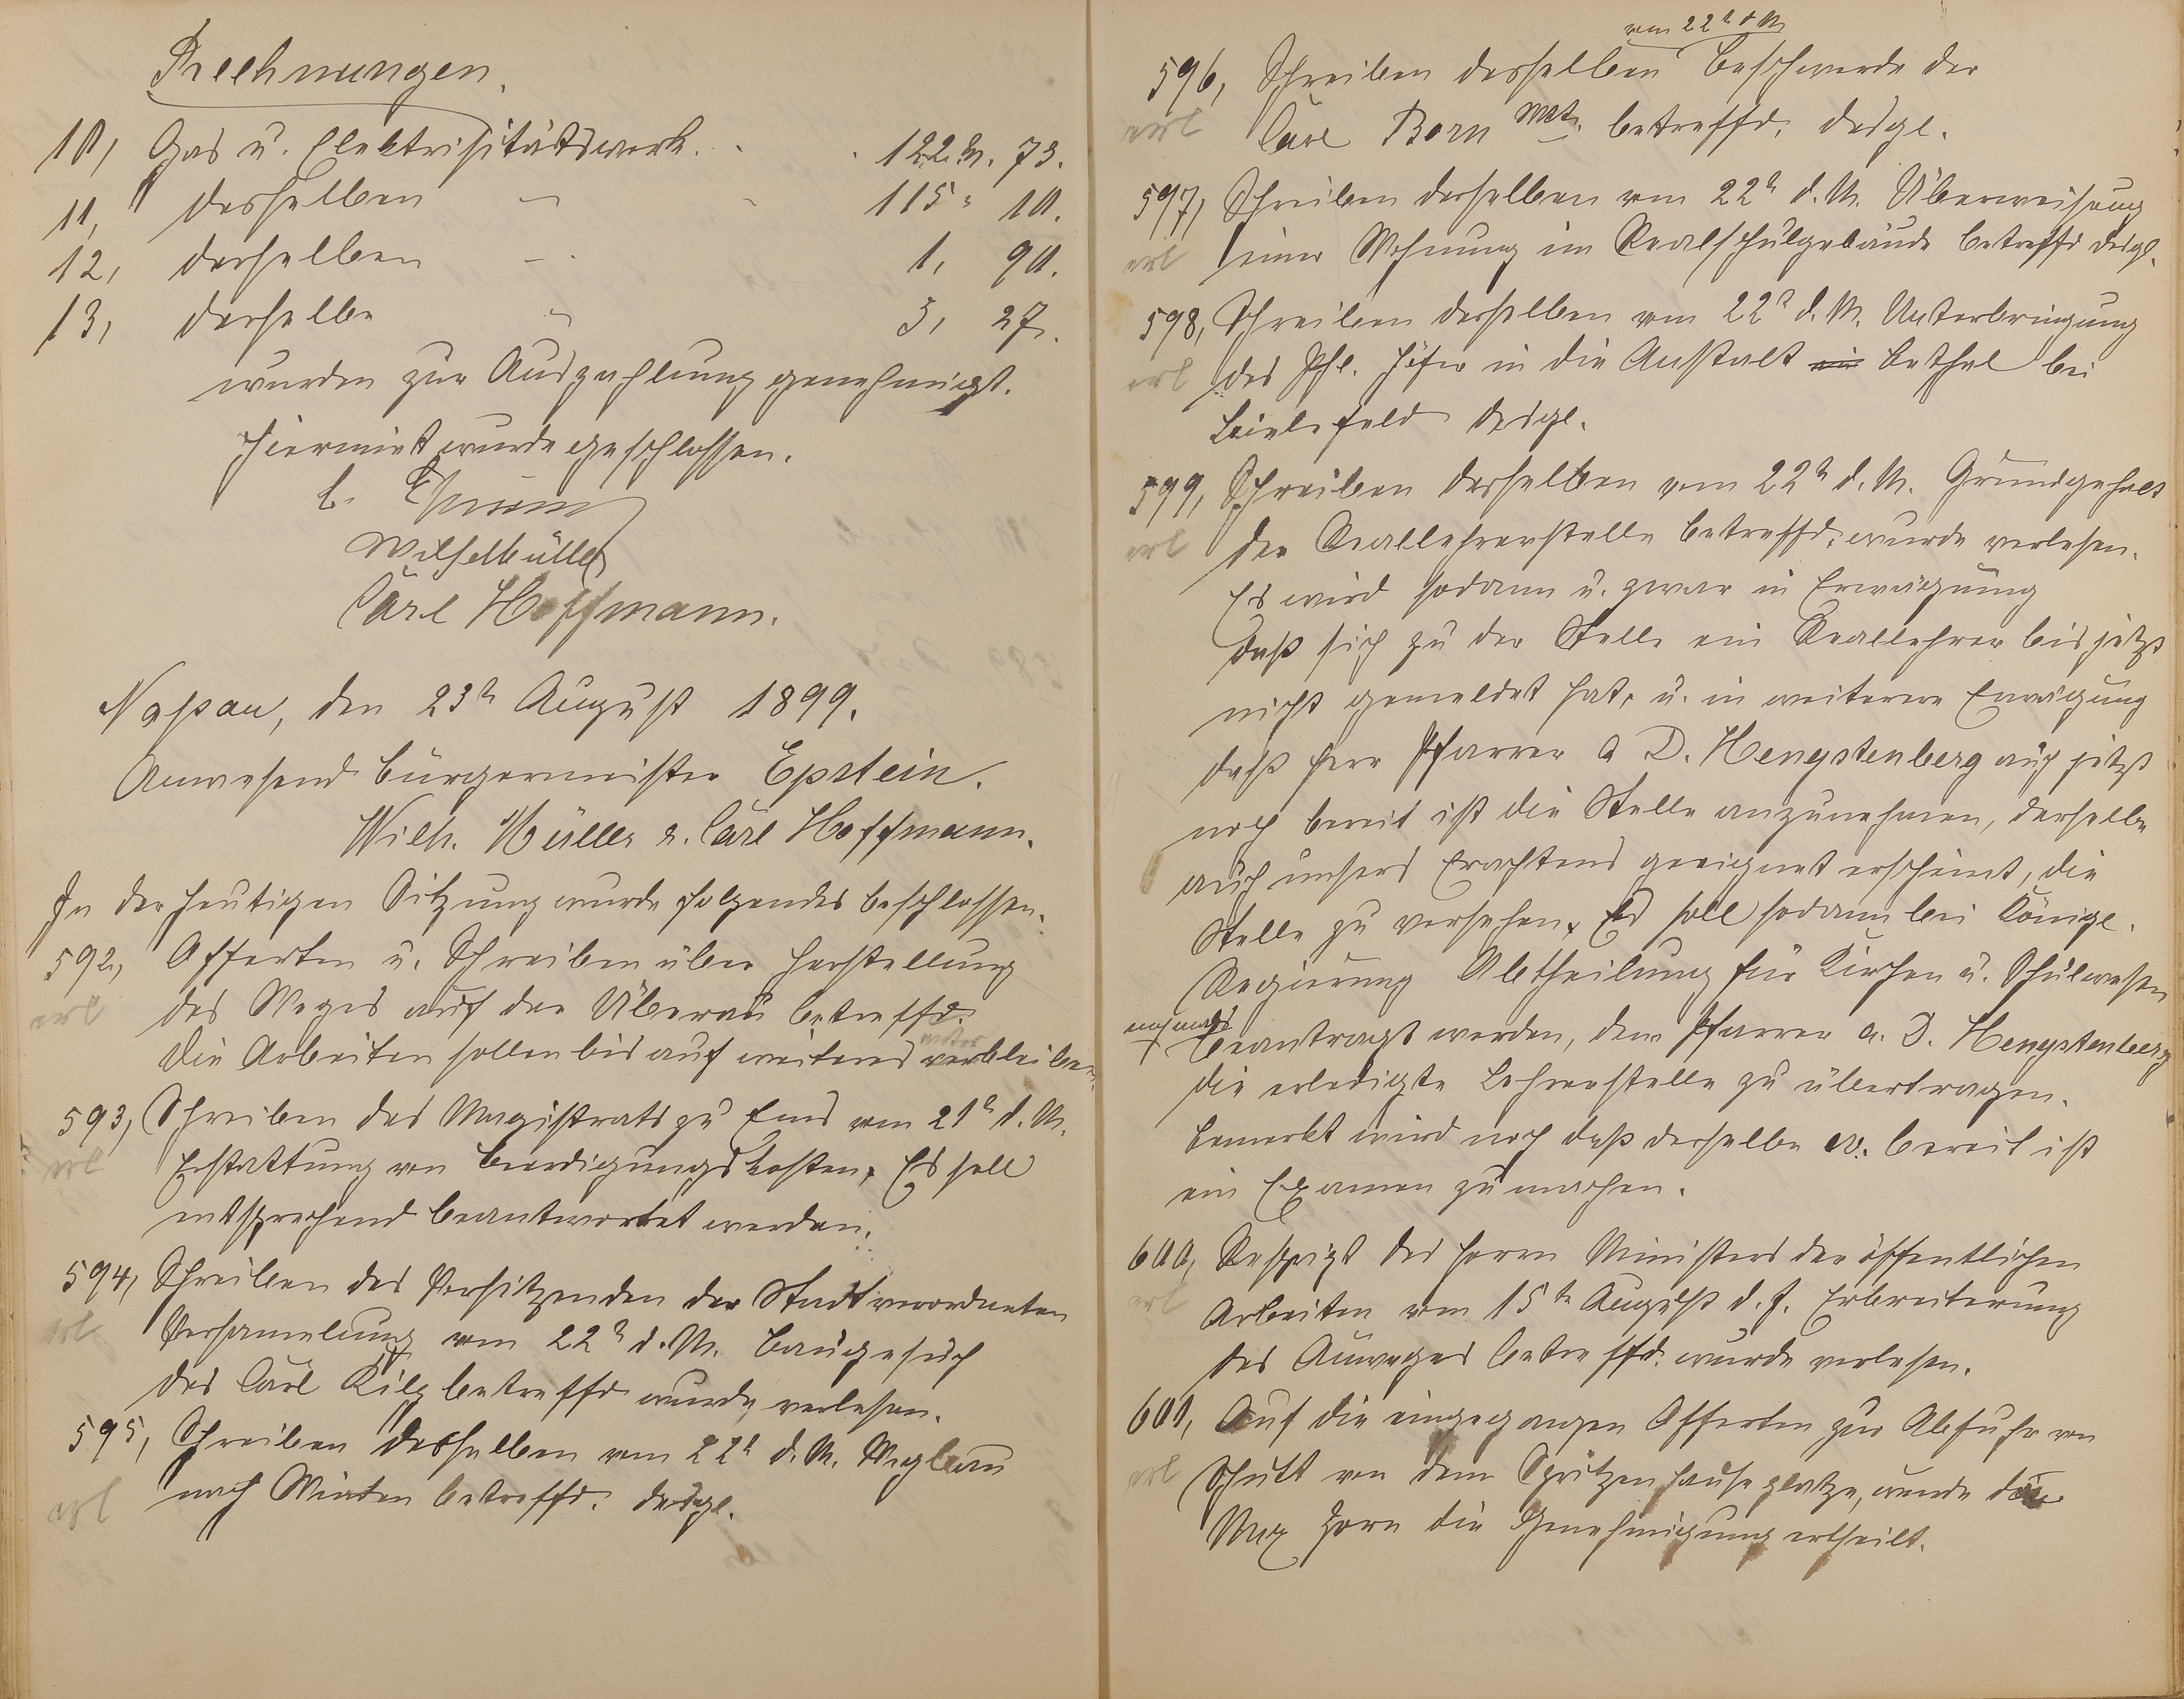 Rechnungen.
10, Gas u. Elektrisitätswerk. . . 122 M. 73.
11, desselben – – 115 " 10.
12, desselben – . 1, 90.
13, derselbe " 3, 27.
wurden zur Auszahlung genehmigt.
Hiermit wurde geschlossen.
Wilh Müller
Carl Hoffmann.
Nassau, den 23t August 1899.
Anwesend Bürgermeister Epstein.
Wilh. Müller u. Carl Hoffmann.
In der heutigen Sitzung wurde folgendes beschlossen.
592, Offerten u. Schreiben über Herstellung
erl des Weges auf der Überau betreffd.
Die Arbeiten sollen bis auf weiteres verbleiben.
593, Schreiben des Magistrats zu Ems vom 21t d. M.
erl Erstattung von Beerdigungskosten, Es soll
entsprechend beantwortet werden.
594, Schreiben des Vorsitzenden der Stadtverordneten
erl Versamelung vom 22t d. M. Baugesuch
des Carl Kilp betreffd wurde verlesen.
595, Schreiben desselben vom 22t d. M. Wegbau
erl nach Winden betreffd. desgl.
vom 22t d M
596, Schreiben desselben Beschwerde der
erl Carl Born Wwe. betreffd. desgl.
597, Schreiben desselben vom 22t d. M. Überweisung
erl einer Wohnung im Realschulgebäude betreffd desgl.
598, Schreiben desselben vom 22t d. M. Unterbringung
erl des Phl. Höfer in die Anstalt in Bethel bei
Bielefeld desgl.
599, Schreiben desselben vom 22t d. M. Grundgehalt
erl der Reallehrerstelle betreffd. wurde verlesen.
Es wird sodann u. zwar in Erwägung
daß sich zu der Stelle ein Reallehrer bis jetzt
nicht gemeldet hat, u. in weiterer Erwägung
daß Herr Pfarrer a D. Hengstenberg auch jetzt
noch bereit ist die Stelle anzunehmen, derselbe
auch unsers Erachtens geeignet erscheint, die
Stelle zu versehen. Es soll sodann bei Königl.
Regierung Abtheilung für Kirchen u. Schulwesen
nochmals
+ beantragt werden, dem Pfarrer a. D. Hengstenberg
die erledigte Lehrerstelle zu übertragen.
Bemerkt wird noch daß derselbe ev. bereit ist
ein Examen zu machen.
600, Reskript des Herrn Ministers der öffentlichen
erl Arbeiten vom 15te August d. J. Erbreiterung
des Auweges betreffd. wurde verlesen.
601, Auf die eingegangen Offerten zur Abfuhr von
erl Schutt von dem Spritzenhauseplatze, wurde
Max Zorn die Genehmigung ertheilt.